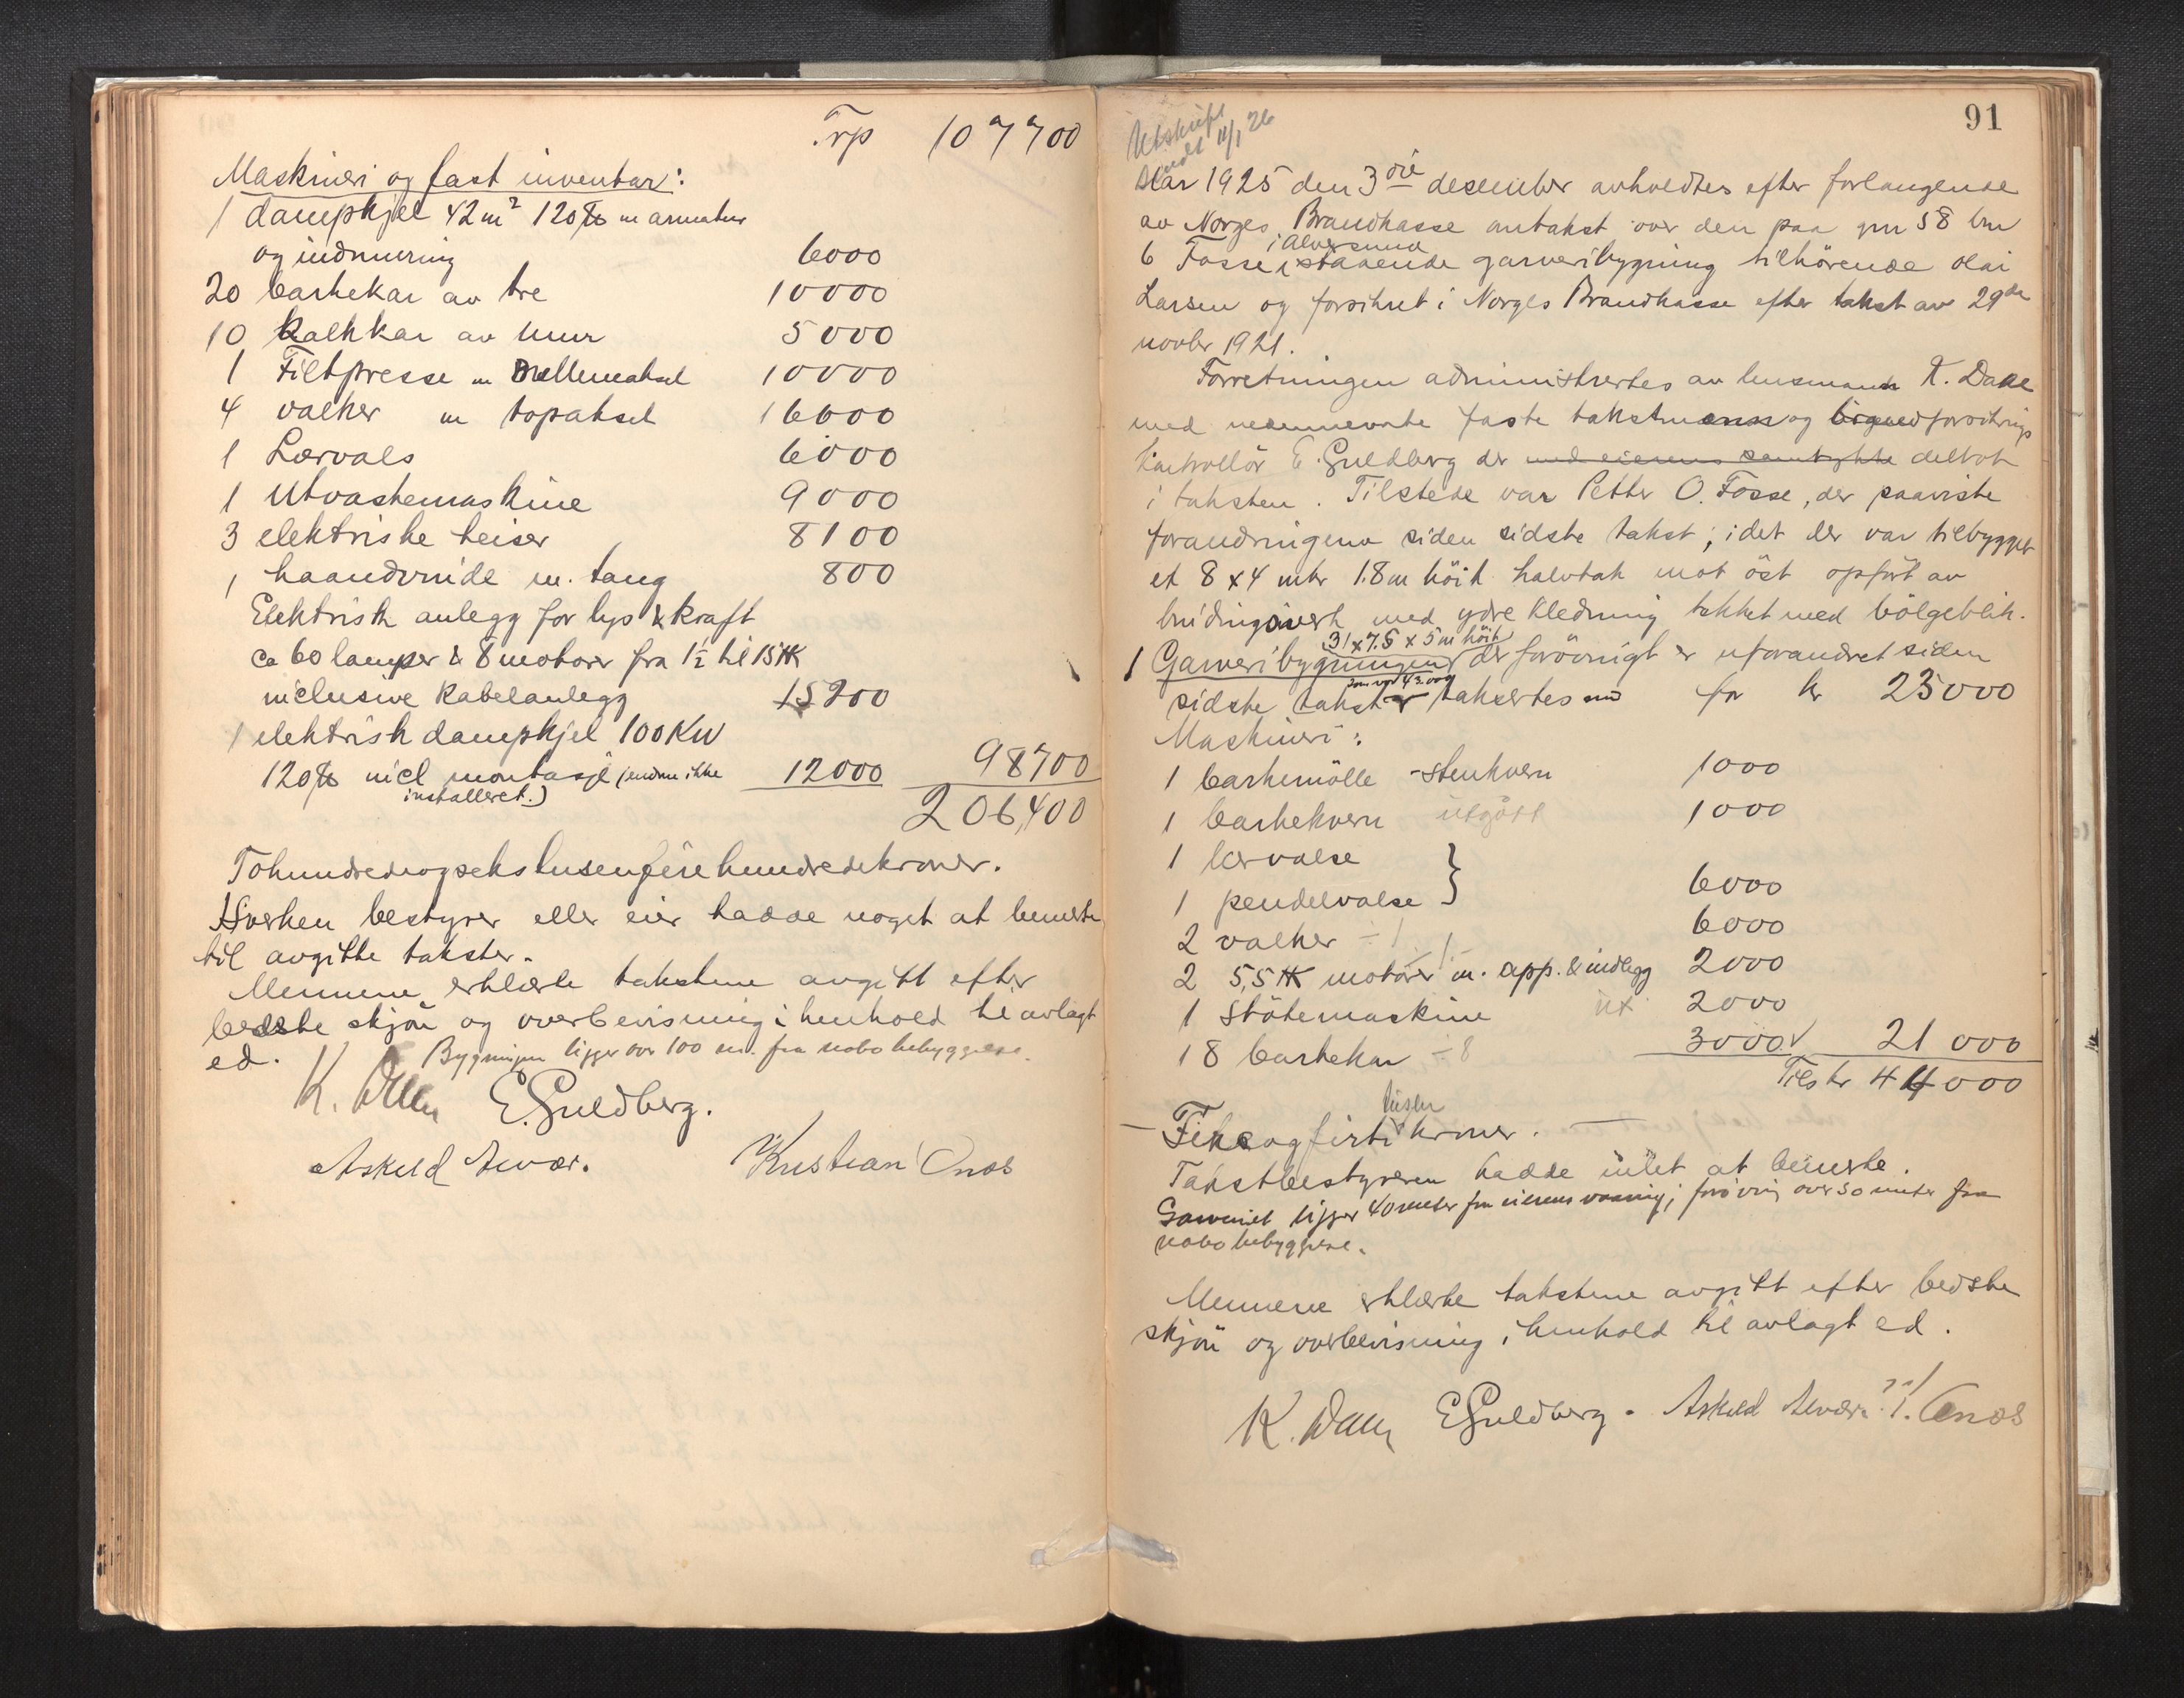 Trp 107700
Maskineri og fast inventar:
1 dampkjel 42 m² 120 ℔ m armatur
og indmuring 6000
20 barkekar av tre 10000
10 Kalkkar av mur 5000
1 Filtpresse m mellemaksel 10000
4 valker m topaksel 16000
1 Lærvals 6000
1 Utvaskemaskine 9000
3 elektriske heiser 8100
1 haandvride m. tang 800
Elektrisk anlegg for lys & kraft
ca 60 lamper & 8 motorer fra 1½ til 15 HK
inclusive Kabelanlegg 15800
1 elektrisk dampkjel 100 KW
120 ℔ incl montasje (endnu ikke 12000 98700
installeret.)
206,400
Tohundredeogsekstusenfirehundredekroner.
Hverken bestyrer eller eier hadde noget at bemerke
til avgitte takster.
Mennene erklærte takstene avgitt efter
bedste skjön og overbevisning i henhold til avlagt
ed. Bygningen ligger over 100 m. fra nabobebyggelse.
K. Dale E. Guldberg.
Askild Alvær. Kristian Onæs
91
Utskrift
sendt 11/1 26
Aar 1925 den 3die desember avholdtes efter forlangende
av Norges Brandkasse omtakst over den paa gnr 58 bnr
i Alversund
6 Fosse staaende garveribygning tilhörende Olai
Larsen og forsikret i Norges Brandkasse efter takst av 29de
novbr 1921.
Forretningen administrertes av lensmann K. Dale
med nedennevnte faste takstmenn og forsikrings
kontrollör E. Guldberg der med eierens samtykke deltok
i taksten. Tilstede var Petter O. Fosse, der paaviste
forandringene siden sidste takst; idet der var tilbygget
et 8 x 4 mtr 1.8 m höit halvtak mot öst opfört av
bindingsverk med ydre Kledning tekket med bölgeblik.
31 x 7.5 x 5 m höit
1 Garveribygningen der forövrigt er uforandret siden
som var 43.000
sidste takst taksertes nu for kr 23000
Maskineri:
1 barkemölle - stenkvern 1000
1 barkekvern utgått 1000
1 lærvalse
1 pendelvalse } 6000
2 valker ÷ 1 6000
2 5,5 HK motorer ÷ 1 m. app. & indlegg 2000
1 Stötemaskine ut 2000
18 barkekar ÷ 8 3000 21 000
Tils kr 44000
tusen
Fireogfirti kroner.
Takstbestyreren hadde intet at bemerke.
Garveriet ligger 40 meter fra eierens vaaning; forövrig over 50 meter fra
nabobebyggelse.
Mennene erklærte takstene avgitt efter bedste
skjön og overbevisning i henhold til avlagt ed.
K. Dale E Guldberg. Askild Alvær. K. Onæs